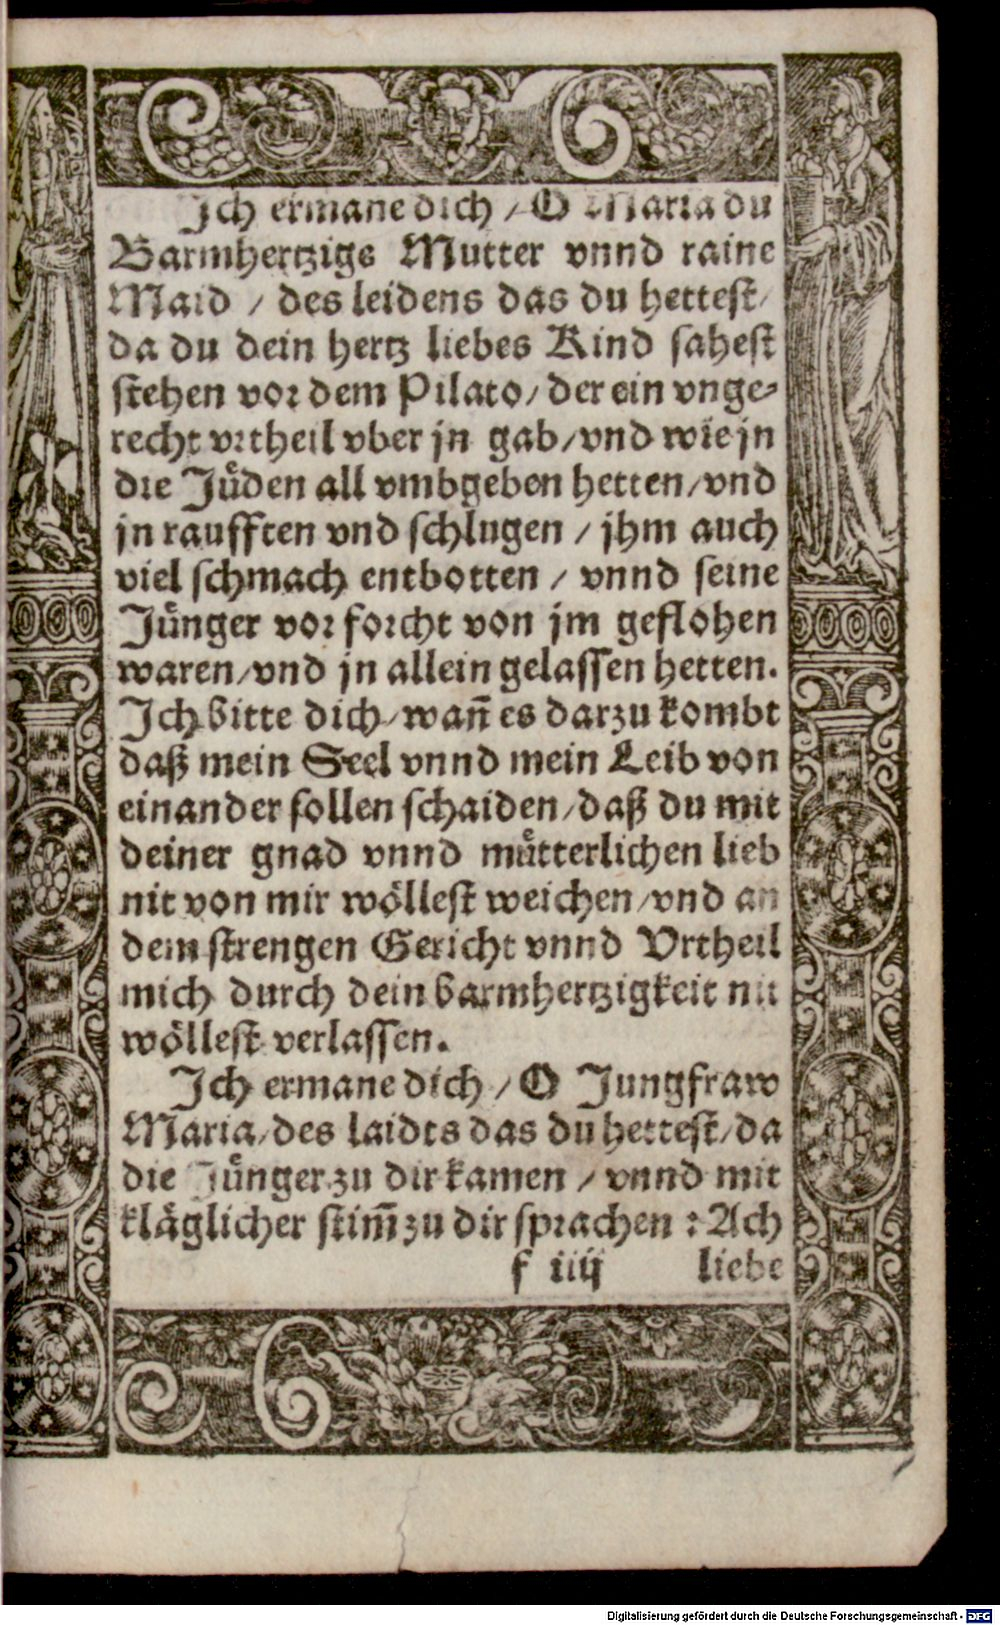 Ich ermane dich / O Maria du
Barmhertzige Mutter vnnd raine
Maid / des leidens das du hettest /
da du dein hertz liebes Kind sahest
stehen vor dem Pilato / der ein vnge-
recht vrtheil vber jn gab / vnd wie jn
die Jůden all vmbgeben hetten / vnd
jn raufften vnd schlugen / jhm auch
viel schmach entbotten / vnnd seine
Jůnger vor forcht von jm geflohen
waren / vnd jn allein gelassen hetten.
Ich bitte dich / wañ es darzu kombt
daß mein Seel vnnd mein Leib von
einander sollen schaiden / daß du mit
deiner gnad vnnd můtterlichen lieb
nit von mir wöllest weichen / vnd an
dem strengen Gericht vnnd Vrtheil
mich durch dein barmhertzigkeit nit
wöllest verlassen.
Ich ermane dich / O Jungfraw
Maria / des laidts das du hettest / da
die Jůnger zu dir kamen / vnnd mit
kläglicher stim̃ zu dir sprachen : Ach
f iiij liebe
Digitalisierung gefördert durch die Deutsche Forschungsgemeinschaft - DFG